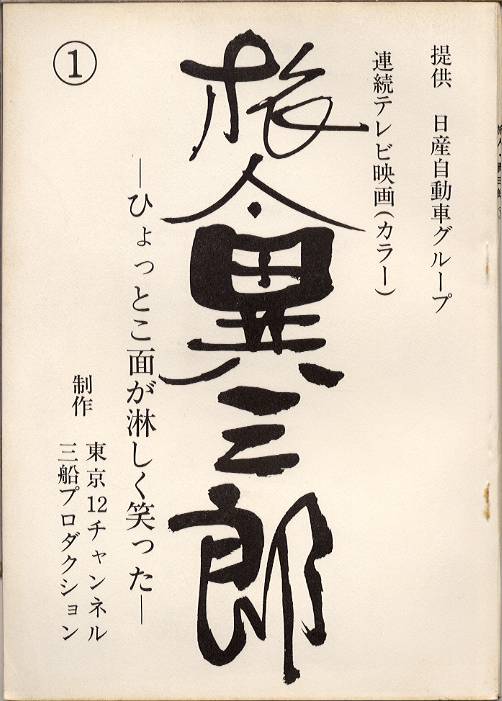 提供　日産自動車グループ
連続テレビ映画(カラー)
旅人・異三郎
―ひょっとこ面が淋しく笑った―
①
制作　東京12チャンネル
三船プロダクション